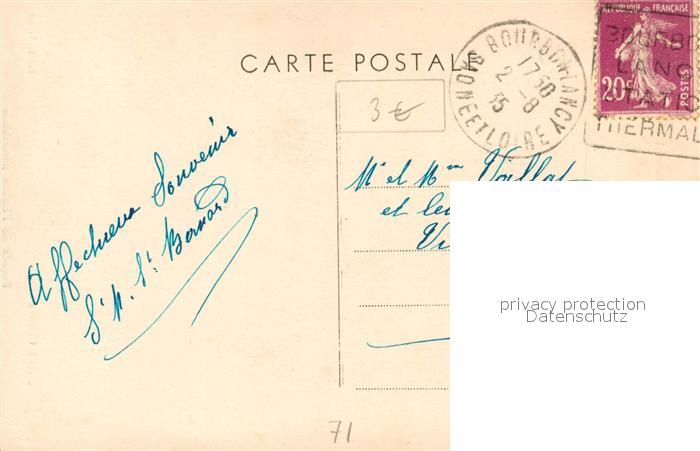 CARTE POSTALE
RÉPUBLIQUE FRANÇAISE
20c
POSTES
BOURBON-LANCY
17 30
2 -8
35
SAONE ET LOIRE
BOURBO
LANC
STATIO
THERMAL
3 €
Mr et Mme Voillat
et leu
Vi
Affectueux Souvenir
St Bernard
privacy protection
Datenschutz
71